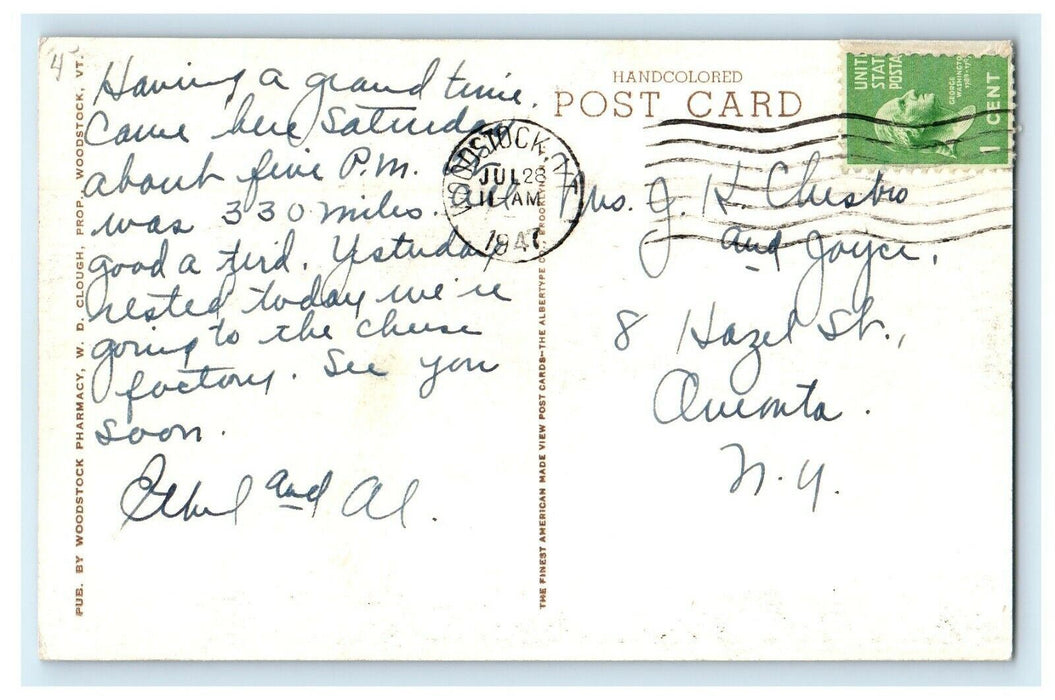 4
Having a grand time.
Came here Saturday
about five P.M.
was 330 miles. all
good a tird. Yesturday
rested today we're
going to the cheese
factory. See you
soon.
Ethel and Al.
PUB. BY WOODSTOCK PHARMACY, W. D. CLOUGH, PROP., WOODSTOCK, VT.
THE FINEST AMERICAN MADE VIEW POST CARDS—THE ALBERTYPE CO., BROOKLYN, N.Y.
HANDCOLORED
POST CARD
WOODSTOCK, VT.
JUL 28
11-AM
1947
UNIT
STAT
POSTA
GEORGE
WASHINGTON
1 CENT
Mrs. J. K. Chesbro
and Joyce,
8 Hazel St.,
Oneonta.
N.Y.